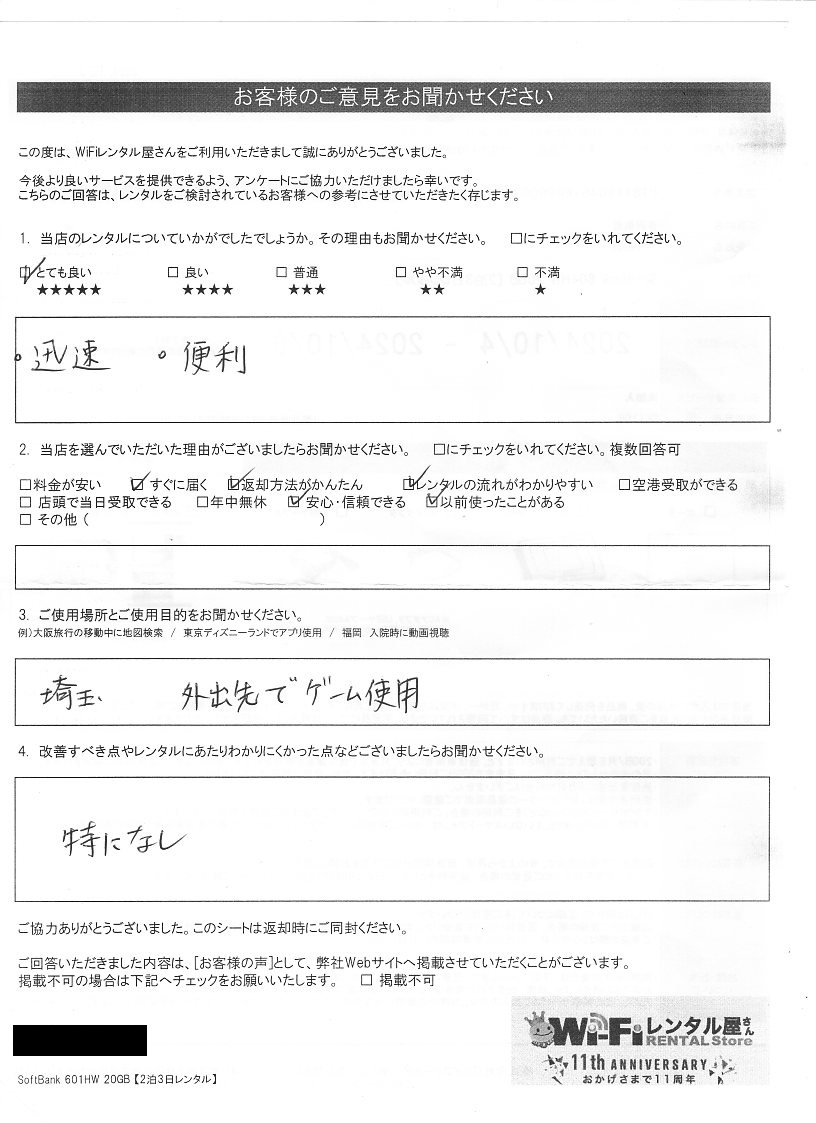 お客様のご意見をお聞かせください
この度は、WiFiレンタル屋さんをご利用いただきまして誠にありがとうございました。
今後より良いサービスを提供できるよう、アンケートにご協力いただけましたら幸いです。
こちらのご回答は、レンタルをご検討されているお客様への参考にさせていただきたく存じます。
1. 当店のレンタルについていかがでしたでしょうか。その理由もお聞かせください。 □にチェックをいれてください。
☑とても良い □ 良い □ 普通 □ やや不満 □ 不満
★★★★★ ★★★★ ★★★ ★★ ★
。迅速 。便利
2. 当店を選んでいただいた理由がございましたらお聞かせください。 □にチェックをいれてください。複数回答可
□料金が安い ☑ すぐに届く ☑返却方法がかんたん ☑レンタルの流れがわかりやすい □空港受取ができる
□ 店頭で当日受取できる □年中無休 ☑ 安心・信頼できる ☑以前使ったことがある
□ その他 ( )
3. ご使用場所とご使用目的をお聞かせください。
例)大阪旅行の移動中に地図検索 / 東京ディズニーランドでアプリ使用 / 福岡 入院時に動画視聴
埼玉、 外出先でゲーム使用
4. 改善すべき点やレンタルにあたりわかりにくかった点などございましたらお聞かせください。
特になし
ご協力ありがとうございました。このシートは返却時にご同封ください。
ご回答いただきました内容は、[お客様の声]として、弊社Webサイトへ掲載させていただくことがございます。
掲載不可の場合は下記へチェックをお願いいたします。 □ 掲載不可
Wi-Fiレンタル屋さん
RENTAL Store
11th ANNIVERSARY
おかげさまで11周年
SoftBank 601HW 20GB【2泊3日レンタル】